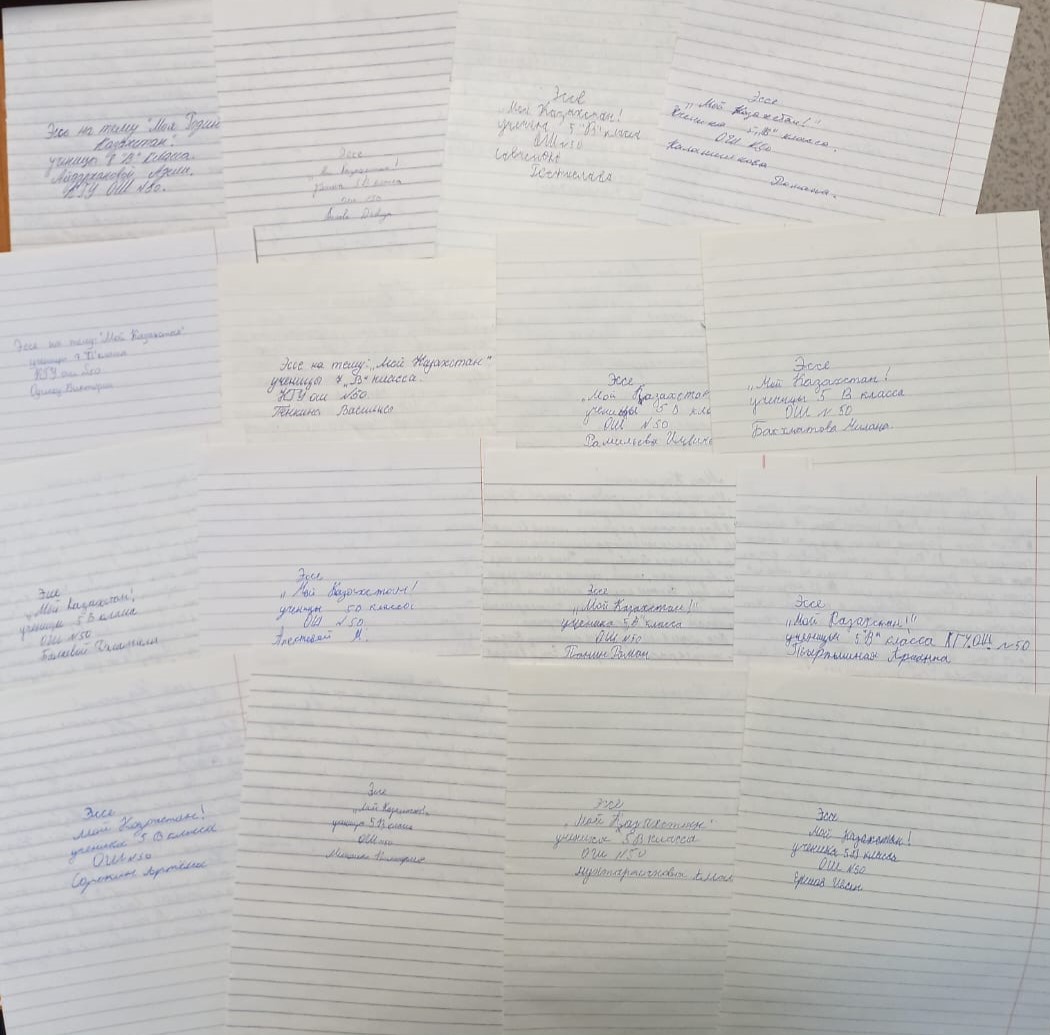 Эссе на тему "Моя Родина
Казахстан".
ученицы 8 "В" класса.
КГУ ОШ №50.
Эссе
ученика 5 В класса
ОШ №50
Эссе
Мой Казахстан!
ученицы 5 "В" класса
ОШ №50
Эссе
„Мой Казахстан!"
Ученика 5 „В" класса.
ОШ №50
Калашникова
Романа.
Эссе на тему: "Мой Казахстан"
ученицы 7 "В" класса
КГУ ОШ №50
Виктории
Эссе на тему: „Мой Казахстан"
ученицы 7 „В" класса.
КГУ ОШ №50.
Генкина Василиса
Эссе
„Мой Казахстан
ученицы 5 В кла
ОШ №50
Рамильева
Эссе
„Мой Казахстан!
ученицы 5 В класса
ОШ №50
Бахматова Милана.
Эссе
„Мой Казахстан!
ученицы 5 В класса
ОШ №50
Эссе
„Мой Казахстан!
ученицы 50 класса
ОШ №50
М.
Эссе
„Мой Казахстан!"
ученика 5"В" класса
ОШ №50
Панин Роман
Эссе
„Мой Казахстан!"
ученицы 5"В" класса КГУ.ОШ. №50
Арианна
Эссе
Мой Казахстан!
ученика 5 В класса
ОШ №50
Сорокин Артём
Эссе
„Мой Казахстан!"
5 В класса
ОШ №50
Эссе
„Мой Казахстан"
ученика 5 В класса
ОШ №50
Эссе
Мой Казахстан!
ученика 5 В класса
ОШ №50
Ершов